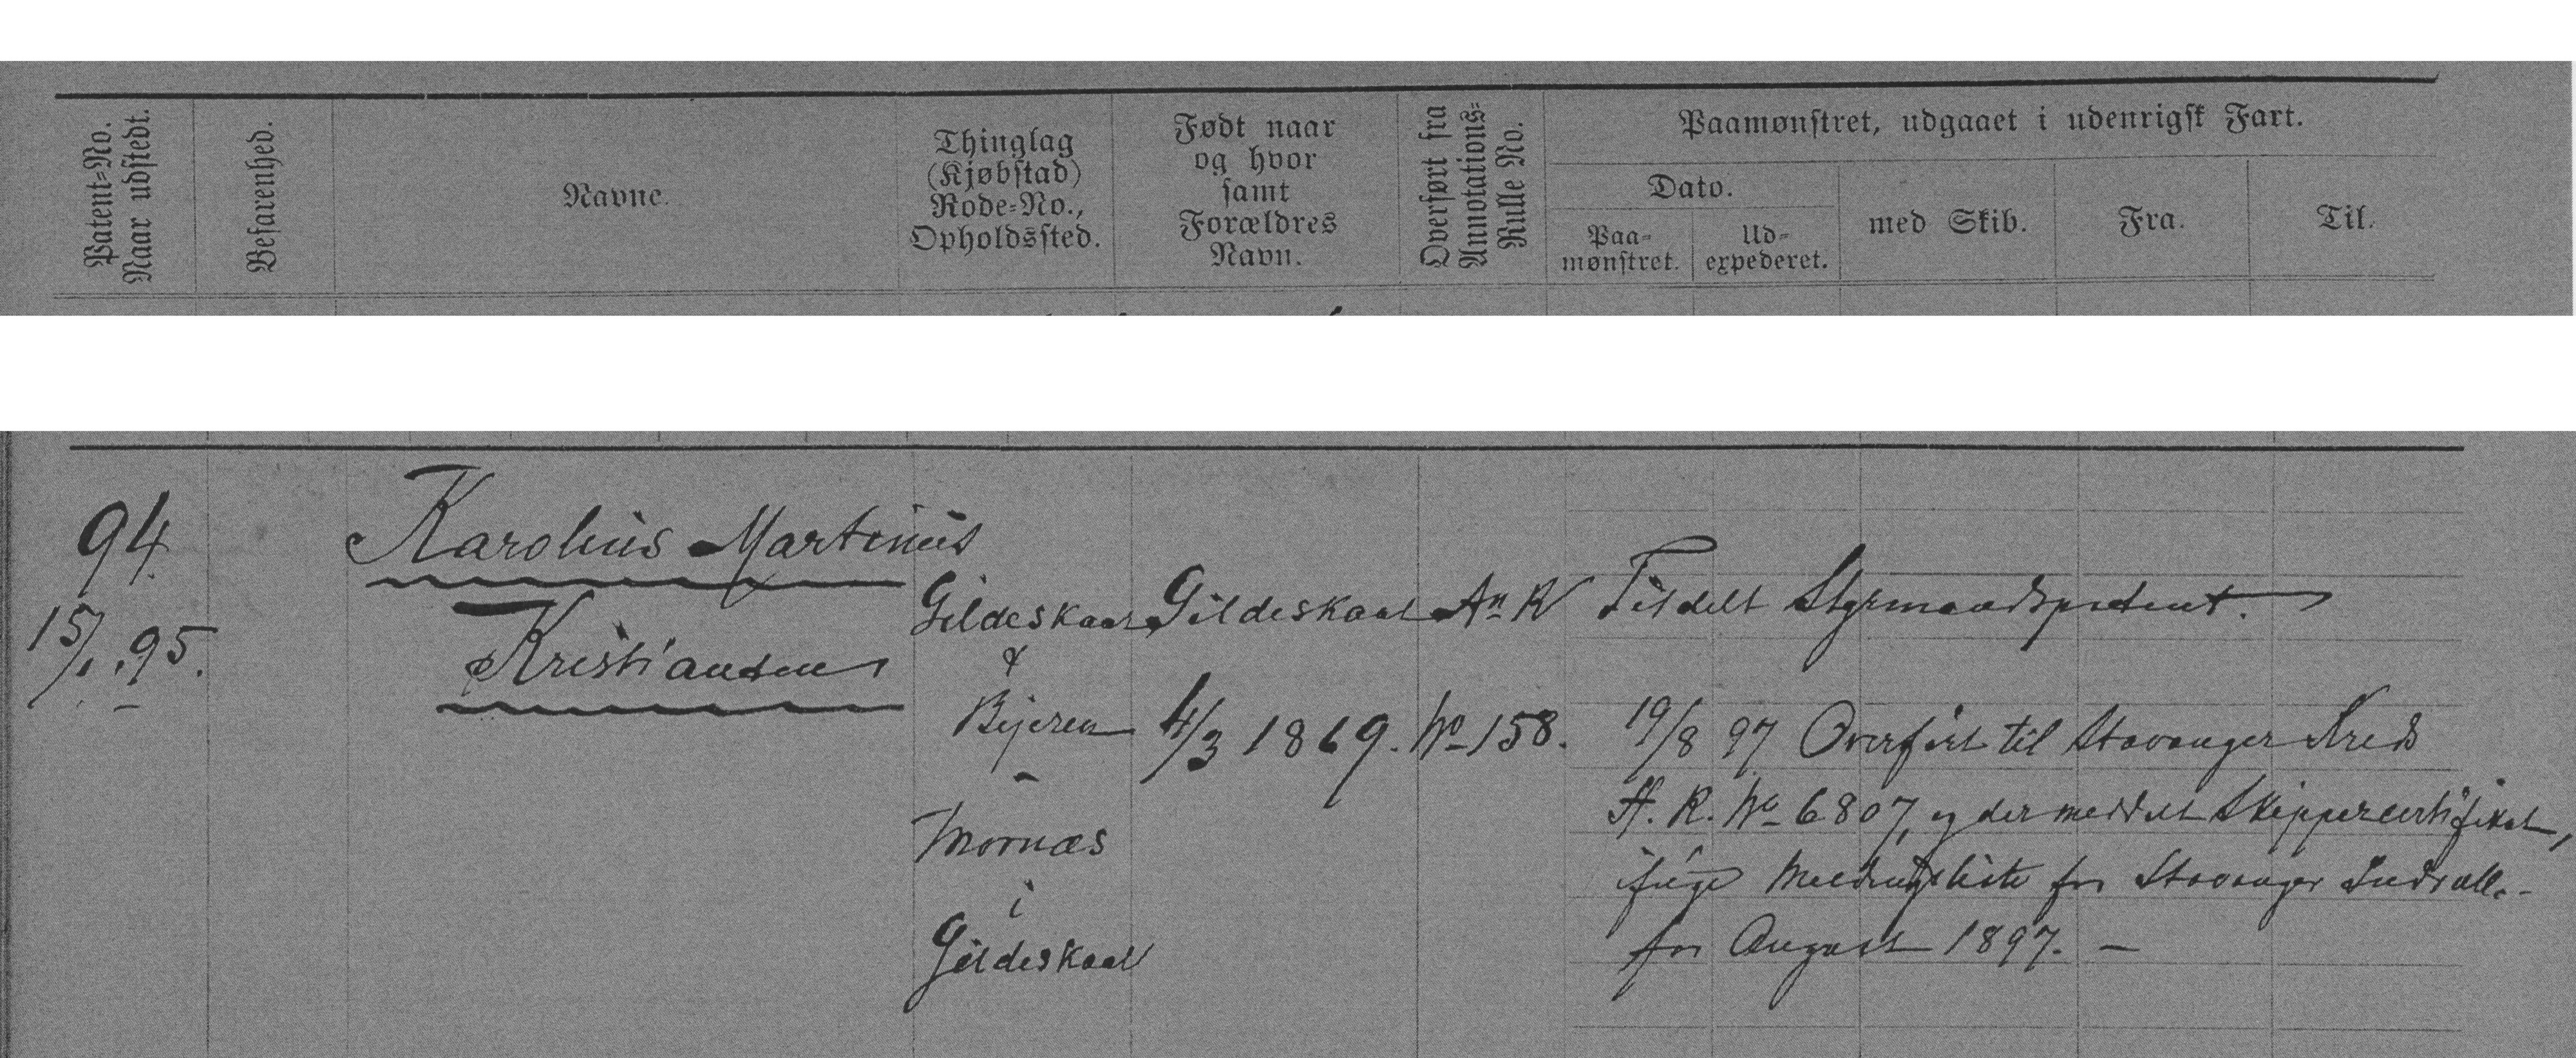 Patent-No.
Naar udstedt.
Befarenhed.
Navne.
Thinglag
(Kjøbstad)
Rode-No.,
Opholdssted.
Født naar
og hvor
samt
Forældres
Navn.
Overført fra
Annotations-
Rulle No.
Paamønstret, udgaaet i udenrigsk Fart.
Dato.
Paa-
mønstret.
Ud-
expederet.
med Skib.
Fra.
Til.
94.
15/1.95.
Karolius Martinius
Kristiansen
Gildeskaal
&
Bejeren
Mornæs
i
Gildeskaal
Gildeskaal
4/3 1869.
An R
No 158.
Tildelt Styrmandspatent.
19/8 97 Overført til Stavanger Kreds
H. R. No 6807, og der meddelt Skippercertifikat,
ifølge Meldingsliste for Stavanger Indrull.
for August 1897. –